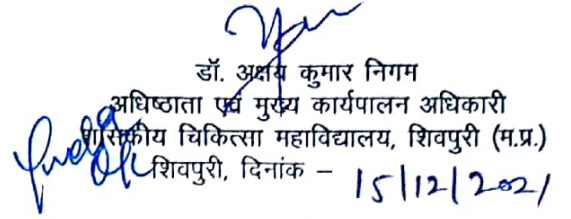 डॉ. अक्षय कुमार निगम
अधिष्ठाता एवं मुख्य कार्यपालन अधिकारी
शासकीय चिकित्सा महाविद्यालय, शिवपुरी (म.प्र.)
शिवपुरी, दिनांक – 15/12/2021